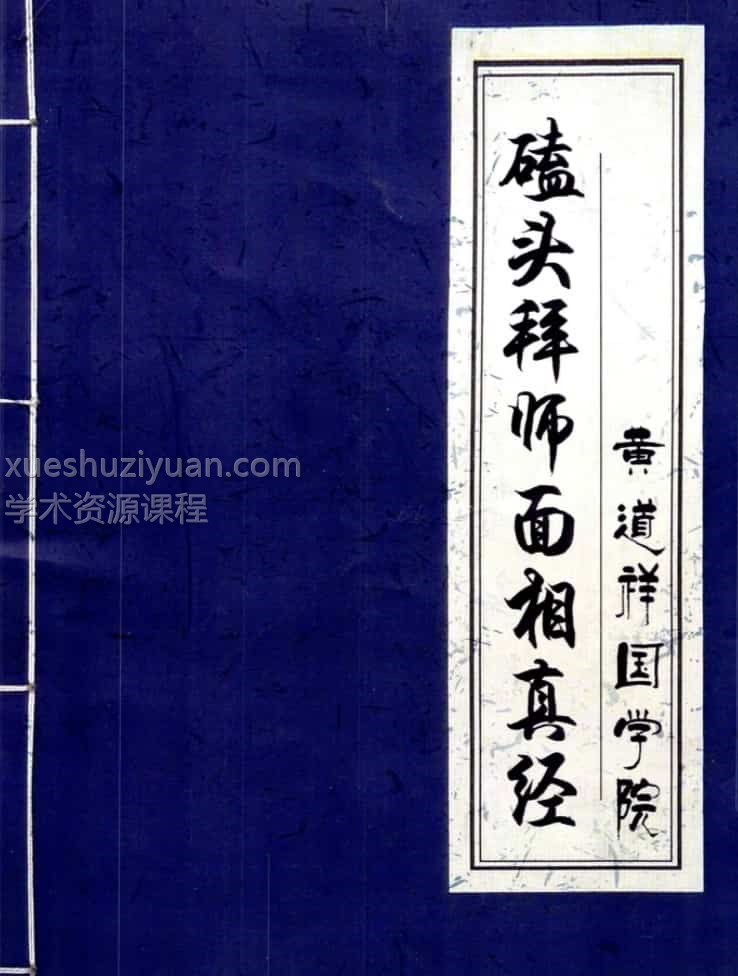 磕头拜师面相真经
黄道祥国学院
xueshuziyuan.com
学术资源课程